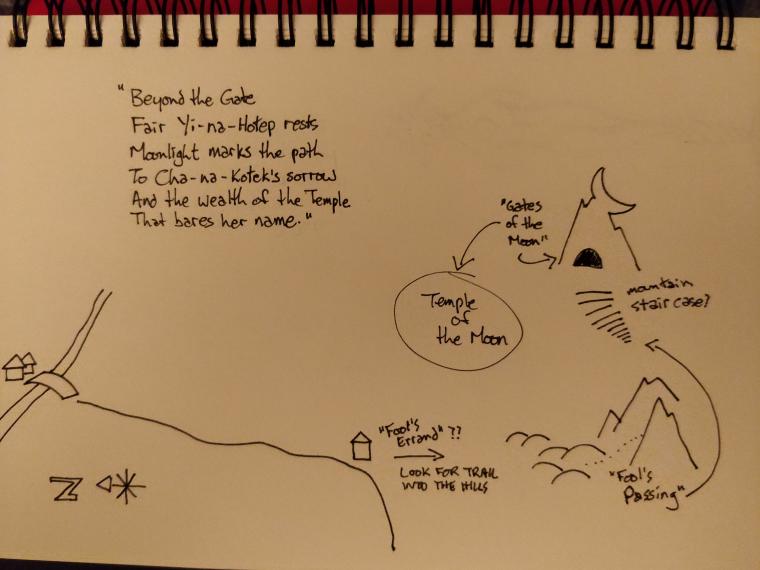 "Beyond the Gate
Fair Yi-na-Hotep rests
Moonlight marks the path
To Cha-na-Kotek's sorrow
And the wealth of the Temple
That bares her name."
"Gates
of the
Moon"
mountain
stair case?
Temple
of
the Moon
"Fool's
Errand" ??
LOOK FOR TRAIL
INTO THE HILLS
"Fool's
Passing"
N